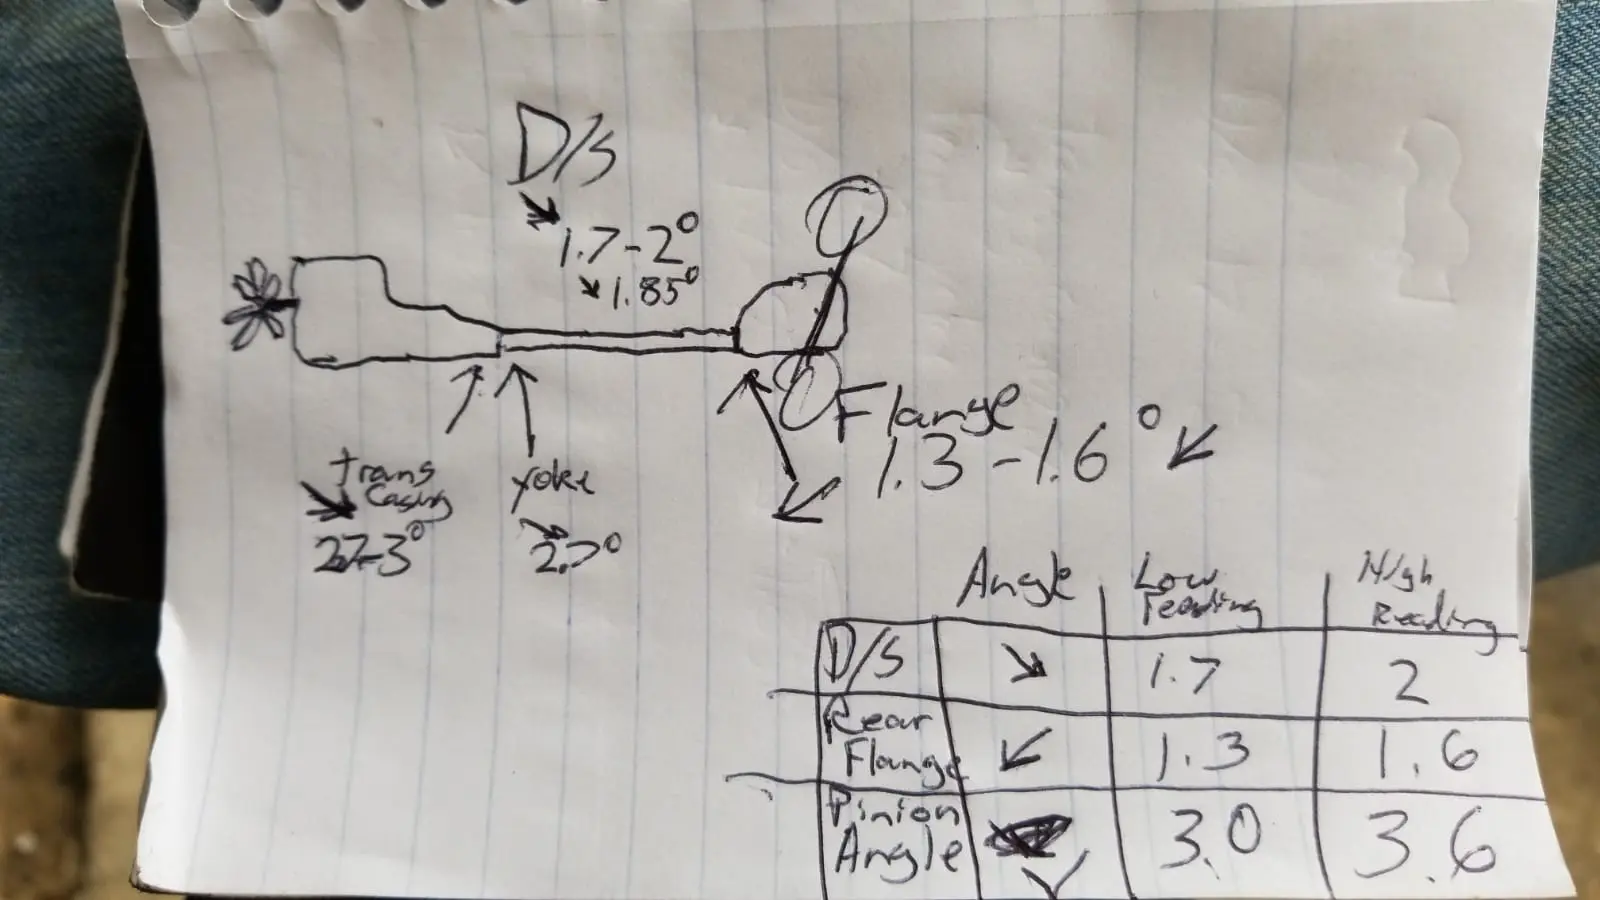 D/S
↘
1.7-2°
↘1.85°
Flange
1.3-1.6° ↙
trans
Casing
↘
2.7-3°
yoke
↘
2.7°
Angle Low reading High Reading
D/S ↘ 1.7 2
Rear Flange ↙ 1.3 1.6
Pinion Angle 3.0 3.6